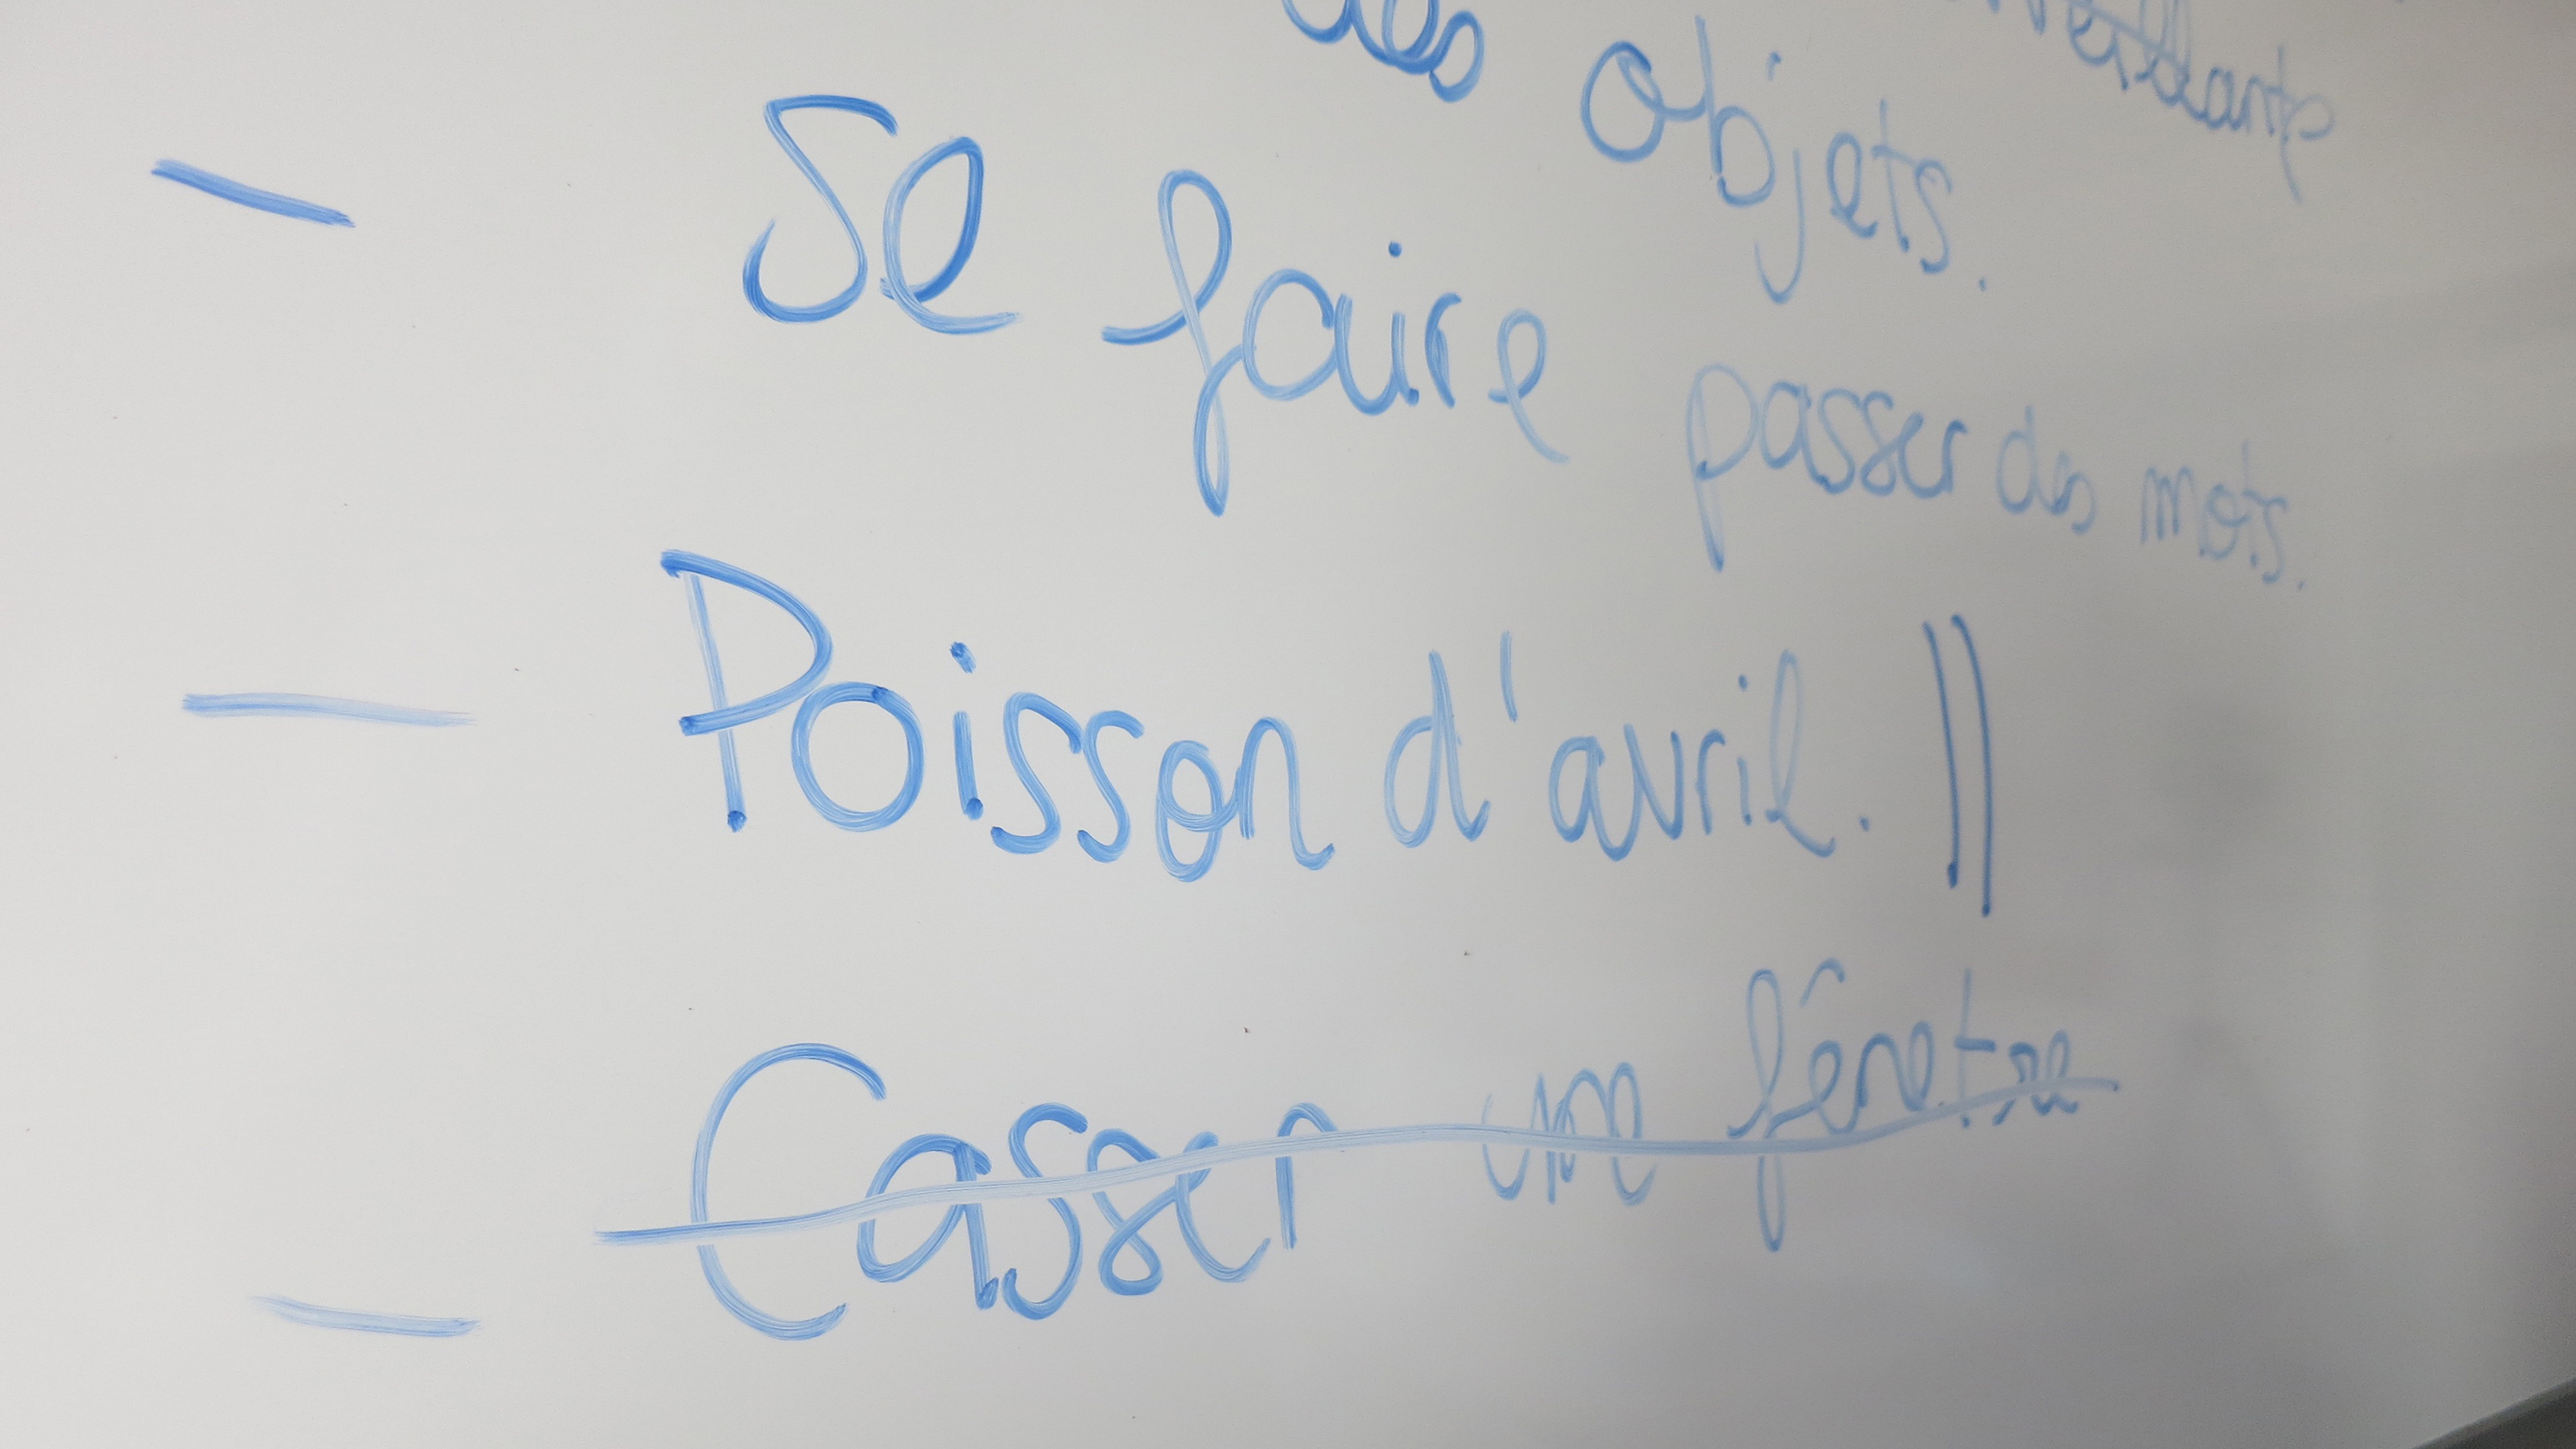 des objets.
— Se faire passer des mots.
— Poisson d'avril. ||
— Casser une fênetre